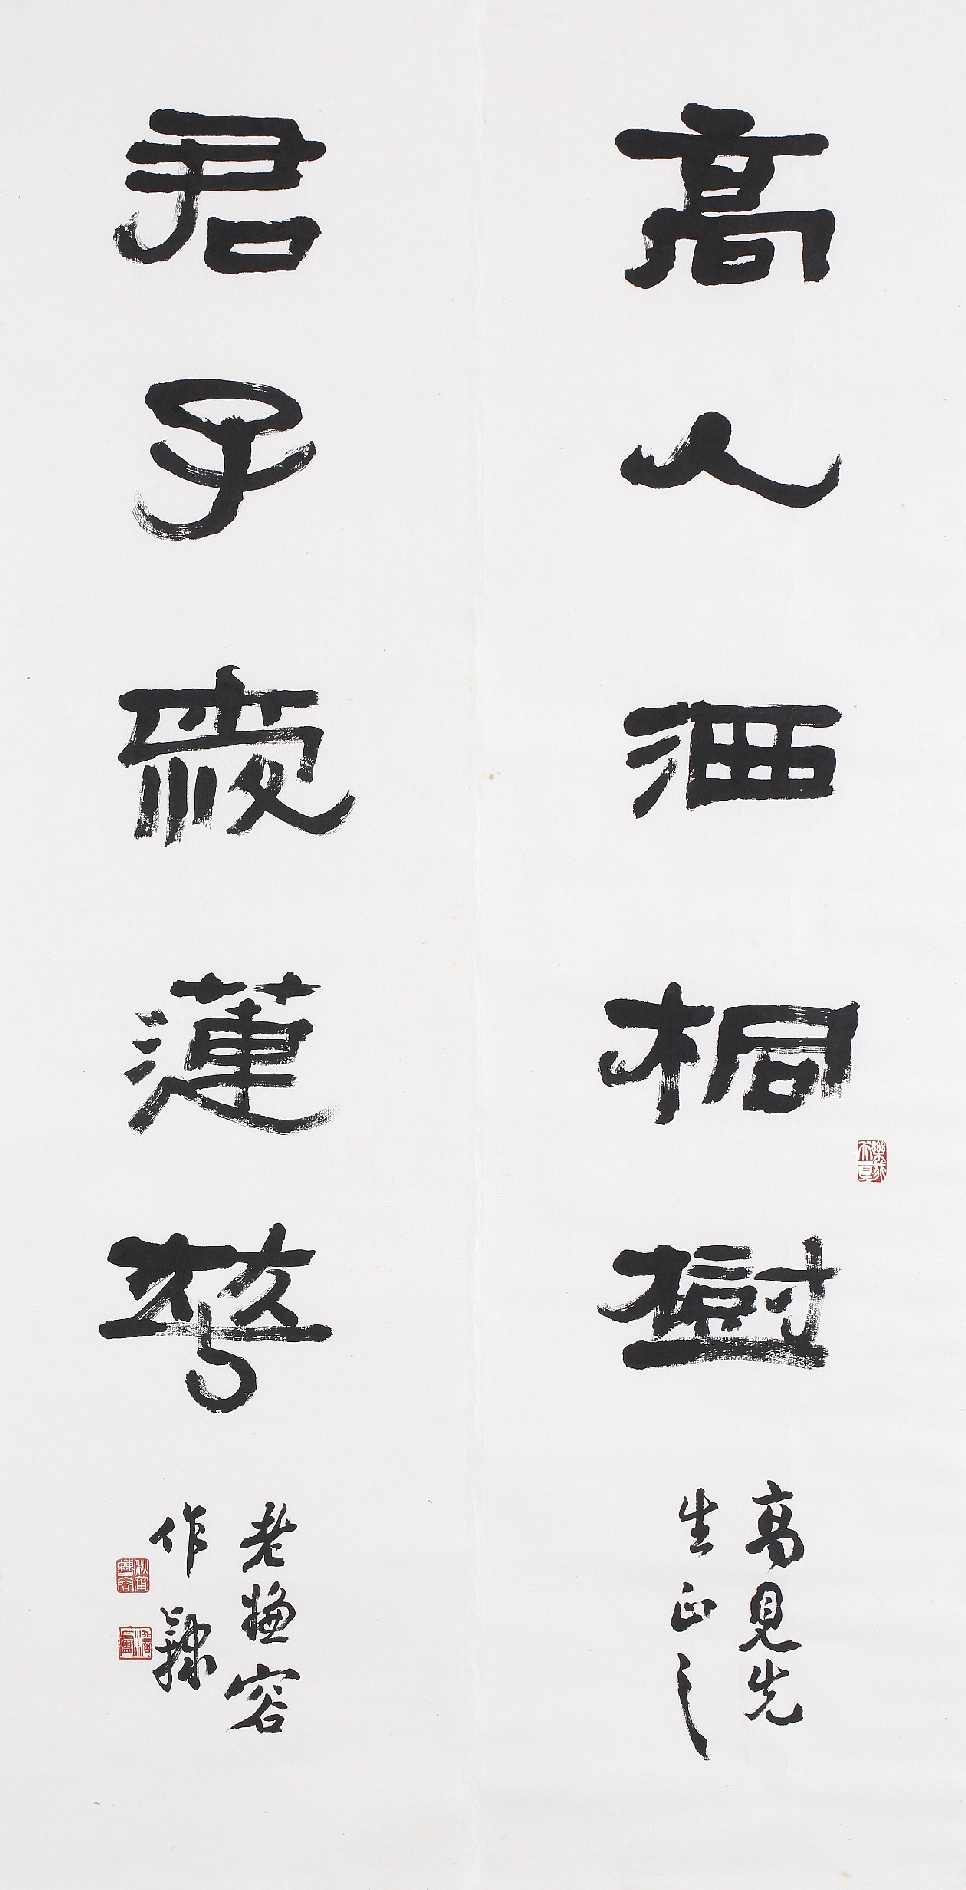 高人洒桐樹
高見先
生正之
君子愛蓮華
老容
作隸